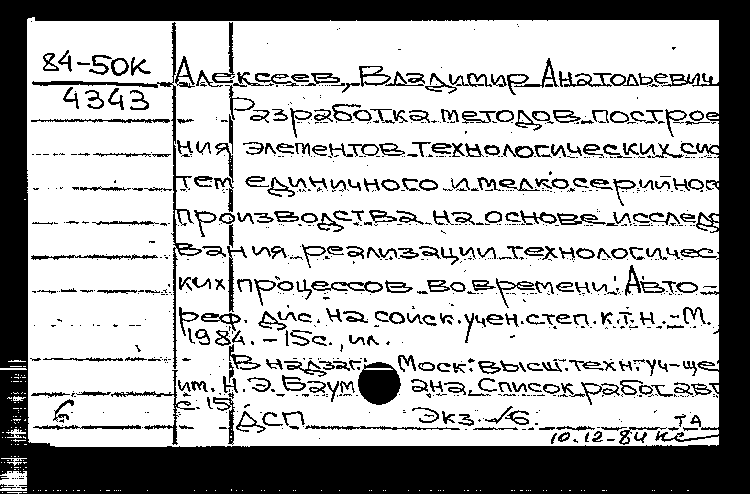 84-50К
4343
Алексеев, Владимир Анатольевич
Разработка методов построе
ния элементов технологических сис
тем единичного и мелкосерийного
производства на основе исследо
вания реализации технологичес
ких процессов во времени: Авто-
реф. дис. на соиск. учен. степ. к.т.н. -М.,
1984. - 15с., ил.
В надзаг.: Моск. высш. техн. уч-ще
им. Н.Э. Баумана. Список работ авт
с. 15
ДСП Экз. №6.
ТА
10.12-84 кс